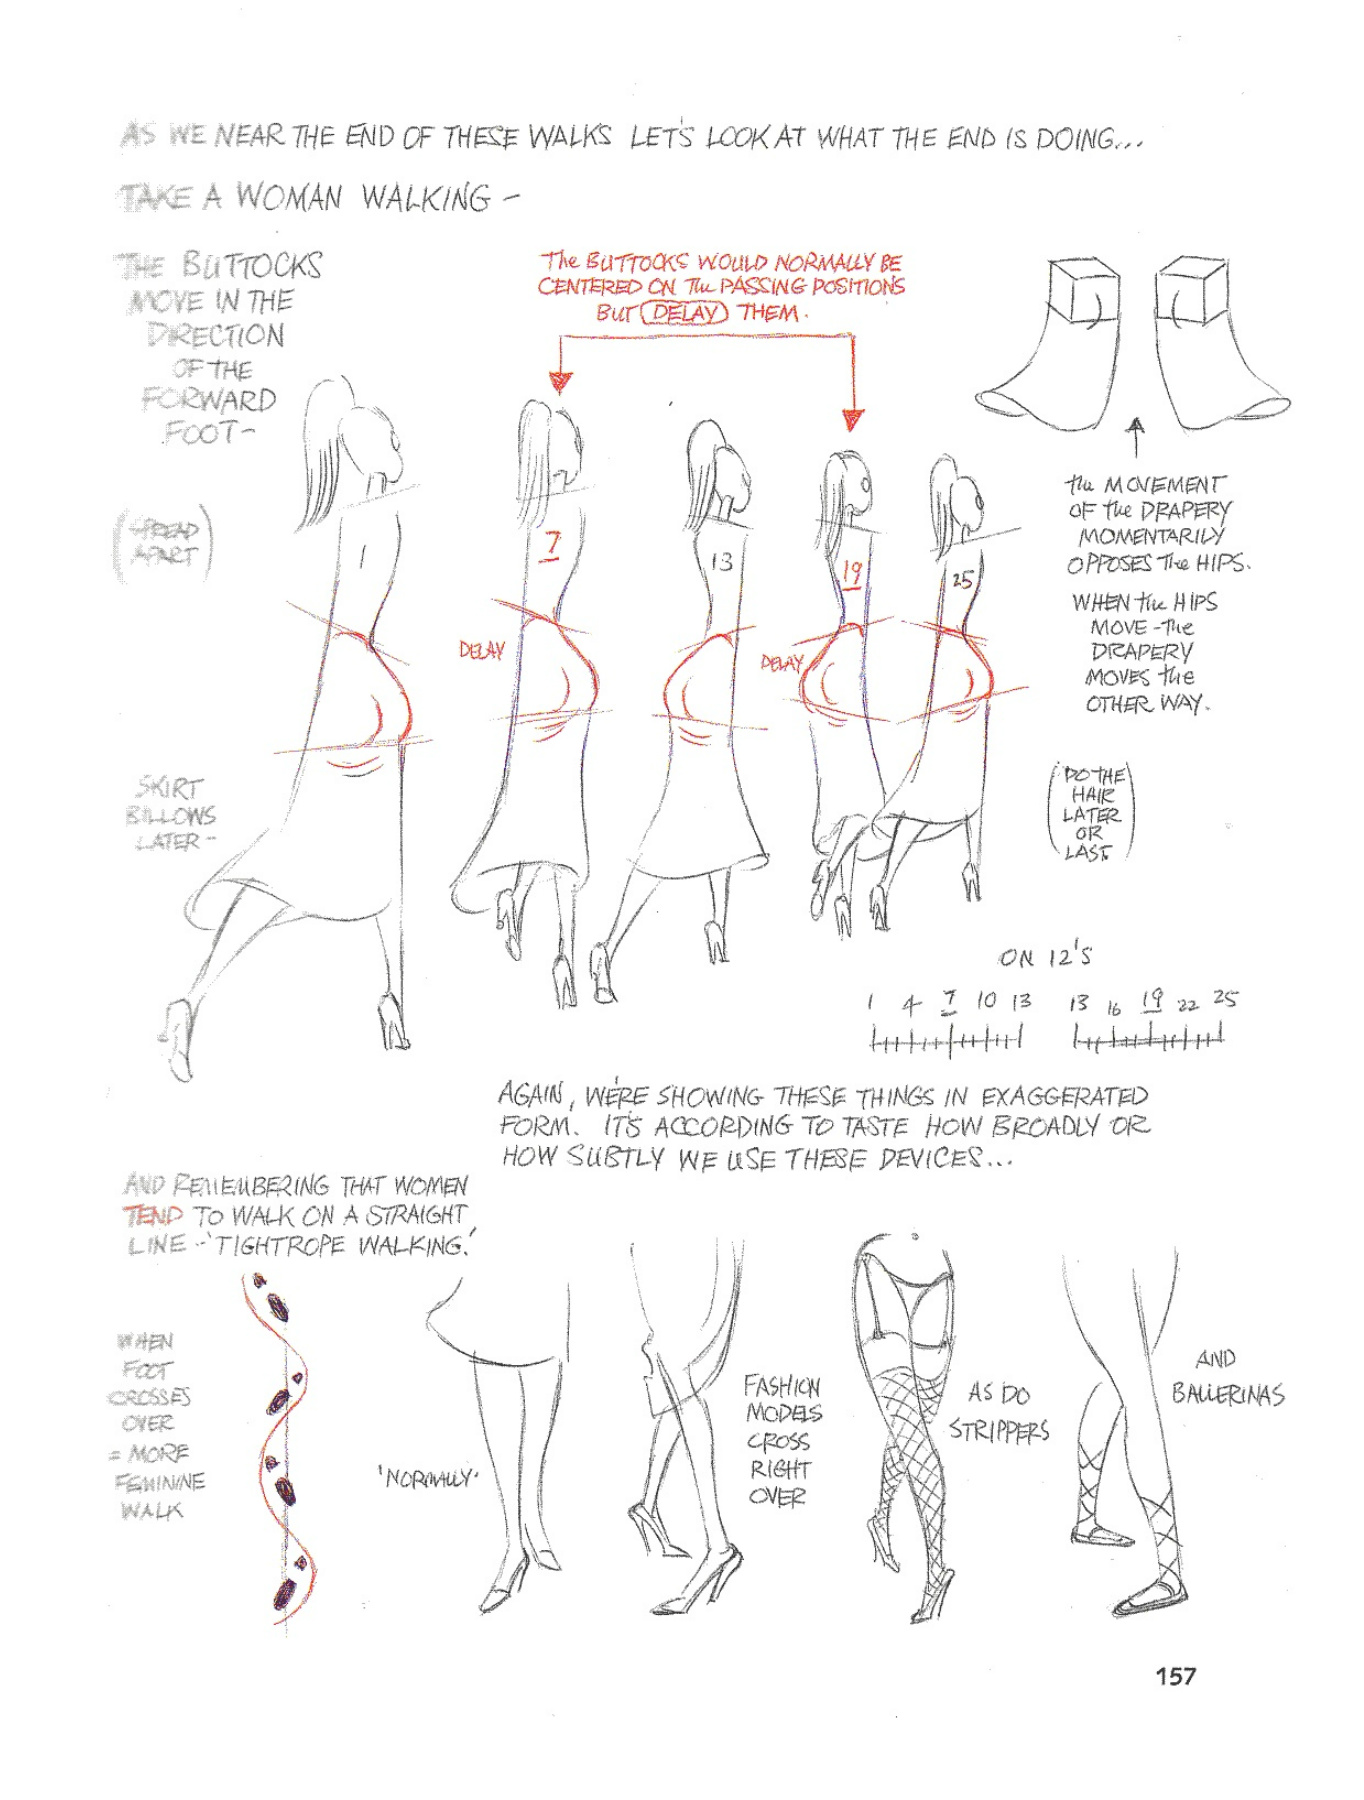 AS WE NEAR THE END OF THESE WALKS LET'S LOOK AT WHAT THE END IS DOING...
TAKE A WOMAN WALKING –
THE BUTTOCKS
MOVE IN THE
DIRECTION
OF THE
FORWARD
FOOT –
(SPREAD
APART)
The BUTTOCKS WOULD NORMALLY BE
CENTERED ON The PASSING POSITIONS
BUT DELAY THEM.
1
7
13
19
25
DELAY
DELAY
the MOVEMENT
OF the DRAPERY
MOMENTARILY
OPPOSES The HIPS.
WHEN the HIPS
MOVE – the
DRAPERY
MOVES the
OTHER WAY.
SKIRT
BILLOWS
LATER –
(DO THE
HAIR
LATER
OR
LAST.)
ON 12'S
1 4 7 10 13 13 16 19 22 25
AGAIN, WE'RE SHOWING THESE THINGS IN EXAGGERATED
FORM. IT'S ACCORDING TO TASTE HOW BROADLY OR
HOW SUBTLY WE USE THESE DEVICES...
AND REMEMBERING THAT WOMEN
TEND TO WALK ON A STRAIGHT
LINE – 'TIGHTROPE WALKING.'
WHEN
FOOT
CROSSES
OVER
= MORE
FEMININE
WALK
'NORMALLY'
FASHION
MODELS
CROSS
RIGHT
OVER
AS DO
STRIPPERS
AND
BALLERINAS
157